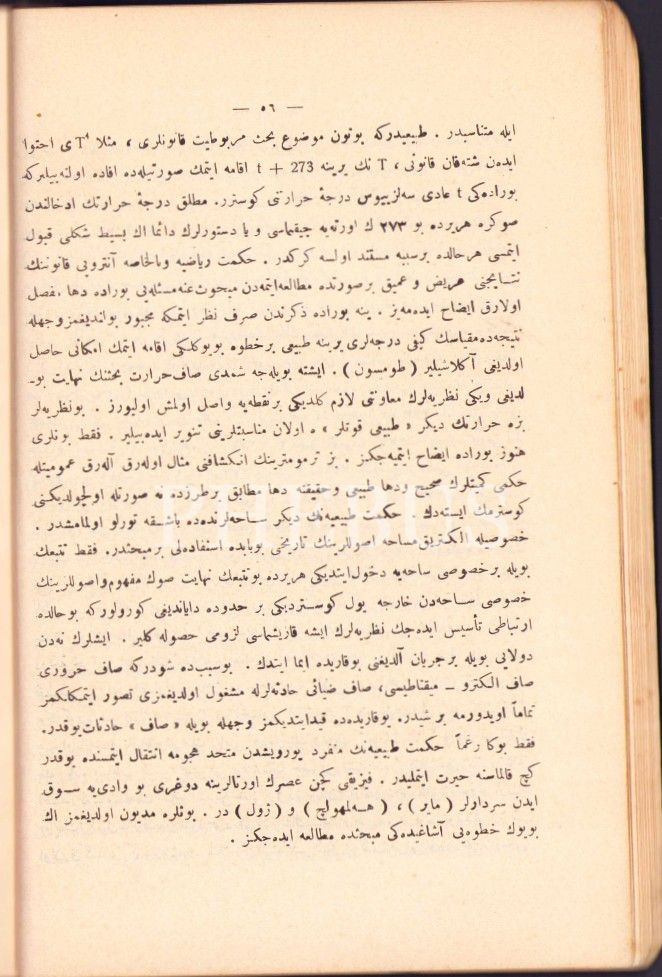 — ٥٦ —
ایله متناسبدر . طبیعیدركه بوتون موضوع بحث مربوطیت قانونلری ، مثلا T⁴ ی احتوا
ایده‌ن شته‌فان قانونی ، T نك یرینه t + 273 اقامه ایتمك صورتیله‌ده افاده اولنه‌بیلیركه
بوراده‌كی t عادی سه‌لزییوس درجۀ حرارتی كوسترر. مطلق درجۀ حرارتك ادخالندن
صوكره هریرده بو ٢٧٣ ك اورته‌یه چیقماسی و یا دستورلرك دائما اك بسیط شكلی قبول
ایتمسی هرحالده برسببه مستند اولسه كركدر . حكمت ریاضیه وبالخاصه آنتروپی قانوننك
نتایجنی عریض و عمیق برصورتده مطالعه‌ایتمه‌دن مبحوث‌عنه‌مسئله‌یی بوراده دها ،فصل
اولارق ایضاح ایده‌میز . ینه بوراده ذكرندن صرف نظر ایتمكه مجبور بولندیغمز‌وجهله
نتیجه‌ده‌مقیاسك كیفی درجه‌لری یرینه طبیعی برخطوه بویوكلكی اقامه ایتمك امكانی حاصل
اولدیغی آكلاشیلیر ( طومسون ) . ایشته بویله‌جه شمدی صاف‌حرارت بحثنك نهایت بو-
لدیغی ویكی نظریه‌لرك معاونتی لازم كلدیكی برنقطه‌یه واصل اولمش اولیورز . بونظریه‌لر
بزه حرارتك دیكر « طبیعی قوتلر » ه اولان مناسبتلرینی تنویر ایده‌بیلیر . فقط بونلری
هنوز بوراده ایضاح ایتمیه‌جكیز . بز ترمومترینك انكشافنی مثال اوله‌رق آله‌رق عمومیتله
حكمی كمیتلرك صحیح ودها طبیعی وحقیقته دها مطابق برطرزده نه صورتله اولچولدیكنی
كوسترمك ایسته‌دك . حكمت طبیعیه‌نك دیكر ساحه‌لرنده‌ده باشقه تورلو اولمامشدر .
خصوصیله الكتریق‌مساحه اصوللرینك تاریخی بوبابده استفاده‌لی برمبحثدر. فقط تتبعك
بویله برخصوصی ساحه‌یه دخول‌ایتدیكی هریرده بوتتبعك نهایت صوك مفهوم‌واصوللرینك
خصوصی ساحه‌دن خارجه یول كوستردیكی بر حدوده دایاندیغی كورولوركه بوحالده
ارتباطی تأسیس ایده‌جك نظریه‌لرك ایشه قاریشماسی لزومی حصوله كلیر . ایشلرك نه‌دن
دولایی بویله برجریان آلدیغنی یوقاریده ایما ایتدك . بوسبب‌ده شودركه صاف حروری
صاف الكترو ـ میقناطیسی، صاف ضیائی حادثه‌لرله مشغول اولدیغمزی تصور ایتمكلكمز
تماماً اویدورمه برشیدر. یوقاریده‌ده قیدایتدیكمز وجهله بویله « صاف » حادثات‌یوقدر.
فقط بوكا رغماً حكمت طبیعیه‌نك منفرد یورویشدن متحد هجومه انتقال ایتمسنده یوقدر
كچ قالماسنه حیرت ایتملیدر. فیزیقی كچن عصرك اورتالرینه دوغری بو وادی‌یه سوق
ایدن سردارلر ( مایر ) ، ( هه‌لمهولچ ) و ( ژول ) در . بونلره مدیون اولدیغمز اك
بویوك خطوه‌یی آشاغیده‌كی مبحثده مطالعه ایده‌جكیز .